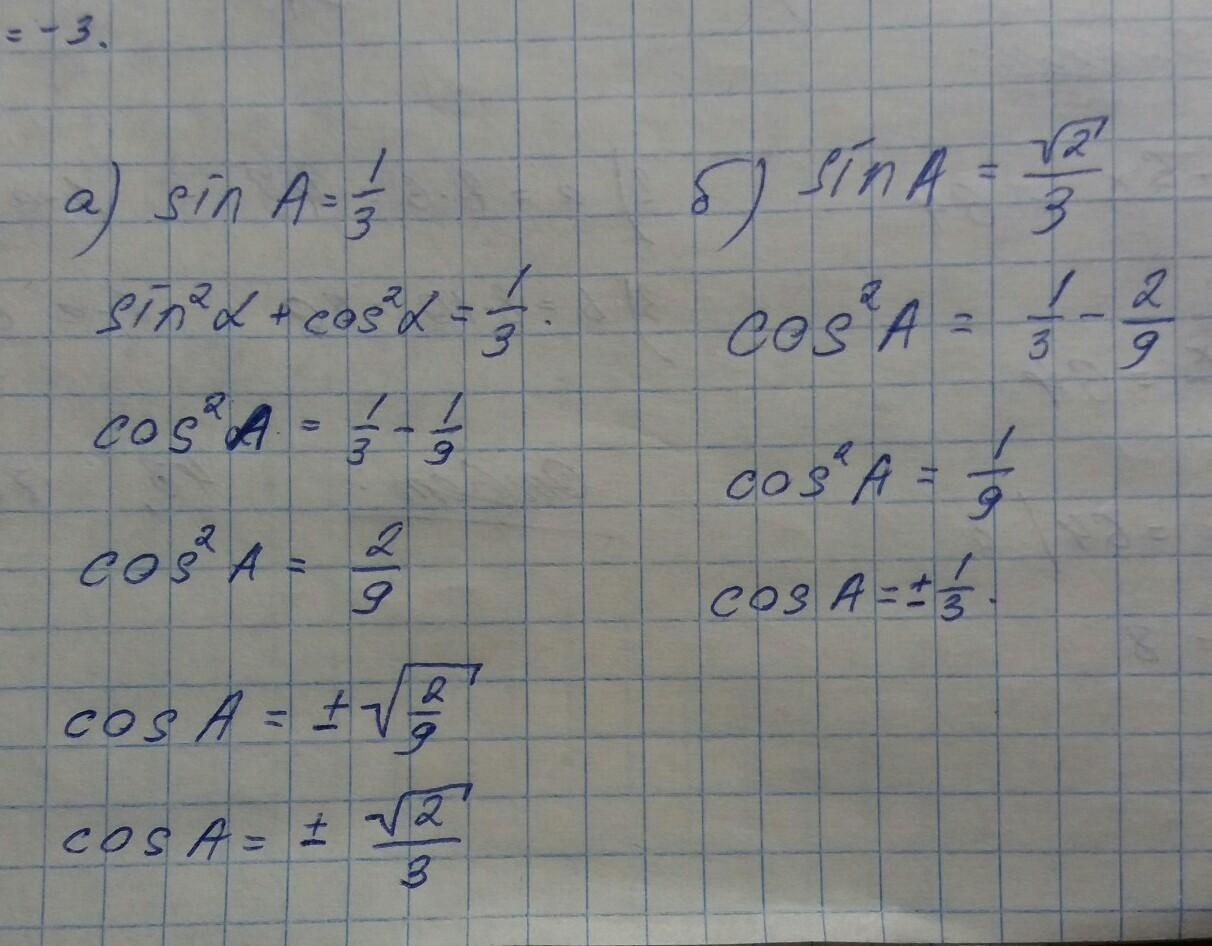 = -3.
а) sin A = 1/3
sin²α + cos²α = 1/3.
cos² A = 1/3 - 1/9
cos² A = 2/9
cos A = ± √(2/9)
cos A = ± √2/3
б) sin A = √2/3
cos² A = 1/3 - 2/9
cos² A = 1/9
cos A = ± 1/3.